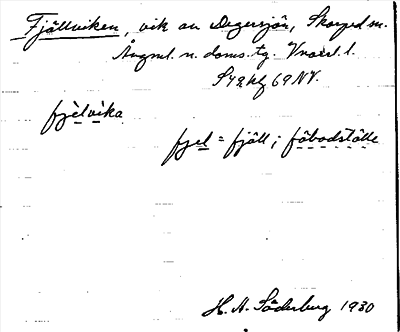 Fjällviken, vik av Degersjön, Skorped sn.
Ångml. n. doms. tg. Vnorrl. l.
S42 kf 69 NV.
fjèlvika
fjel = fjäll; fäbodställe
H. A. Söderberg 1930